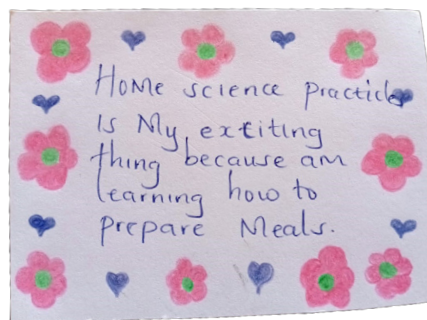 Home science practicles
Is My exciting
thing because am
learning how to
prepare Meals.